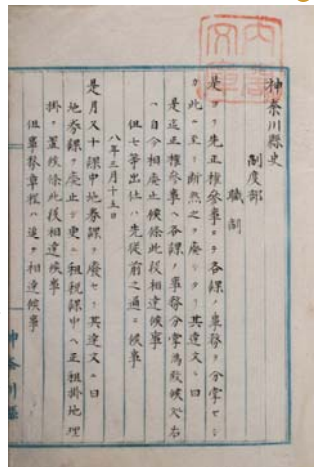 神奈川縣史
制度部
職制
是ヨリ先正權參事ヲシテ各課ノ事務ヲ分掌セシ
カ此ニ至リ斷然之ヲ廢シタリ其達文ニ曰
是迄正權參事ヘ各課ノ事務分掌爲致候處右
ハ自今相廢止候條此段相達候事
但七等出仕ハ先從前之通ニ候事
八年三月十五日
是月又十課中地券課ヲ廢セリ其達文ニ曰
地券課ヲ廢止シ更ニ租稅課中ヘ正租掛地理
掛ヲ置候條此段相達候事
但事務章程ハ追テ相達候事
神奈川縣